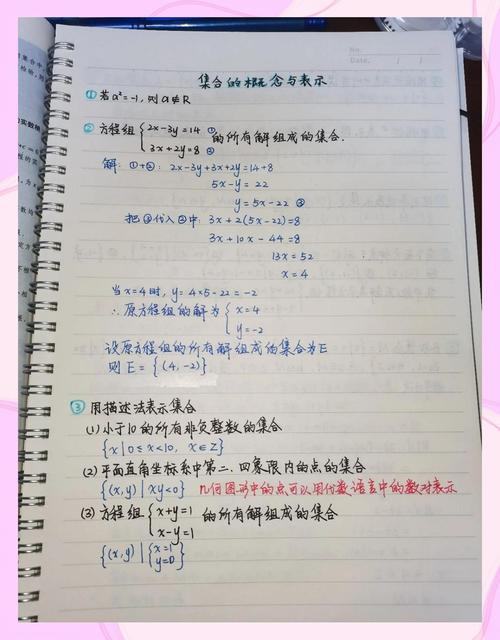 No.
Date.
集合的概念与表示
① 若a²=-1, 则a∉R
② 方程组{2x-3y=14 ① 的所有解组成的集合.
3x+2y=8 ②
解: ①+②: 2x-3y+3x+2y=14+8
5x-y=22
y=5x-22 ③
把③代入②中: 3x+2(5x-22)=8
3x+10x-44=8
13x=52
x=4
当x=4时, y=4×5-22=-2
∴原方程组的解为{x=4
y=-2
设原方程组的所有解组成的集合为E
则E={(4,-2)}
③ 用描述法表示集合
(1) 小于10的所有非负整数的集合
{x|0≤x<10, x∈Z}
(2) 平面直角坐标系中第二、四象限内的点的集合
{(x,y)|xy<0} 几何图形中的点可以用代数语言中的数对表示
(3) 方程组{x+y=1 的所有解组成的集合
x-y=1
{(x,y)|{x=1
y=0}